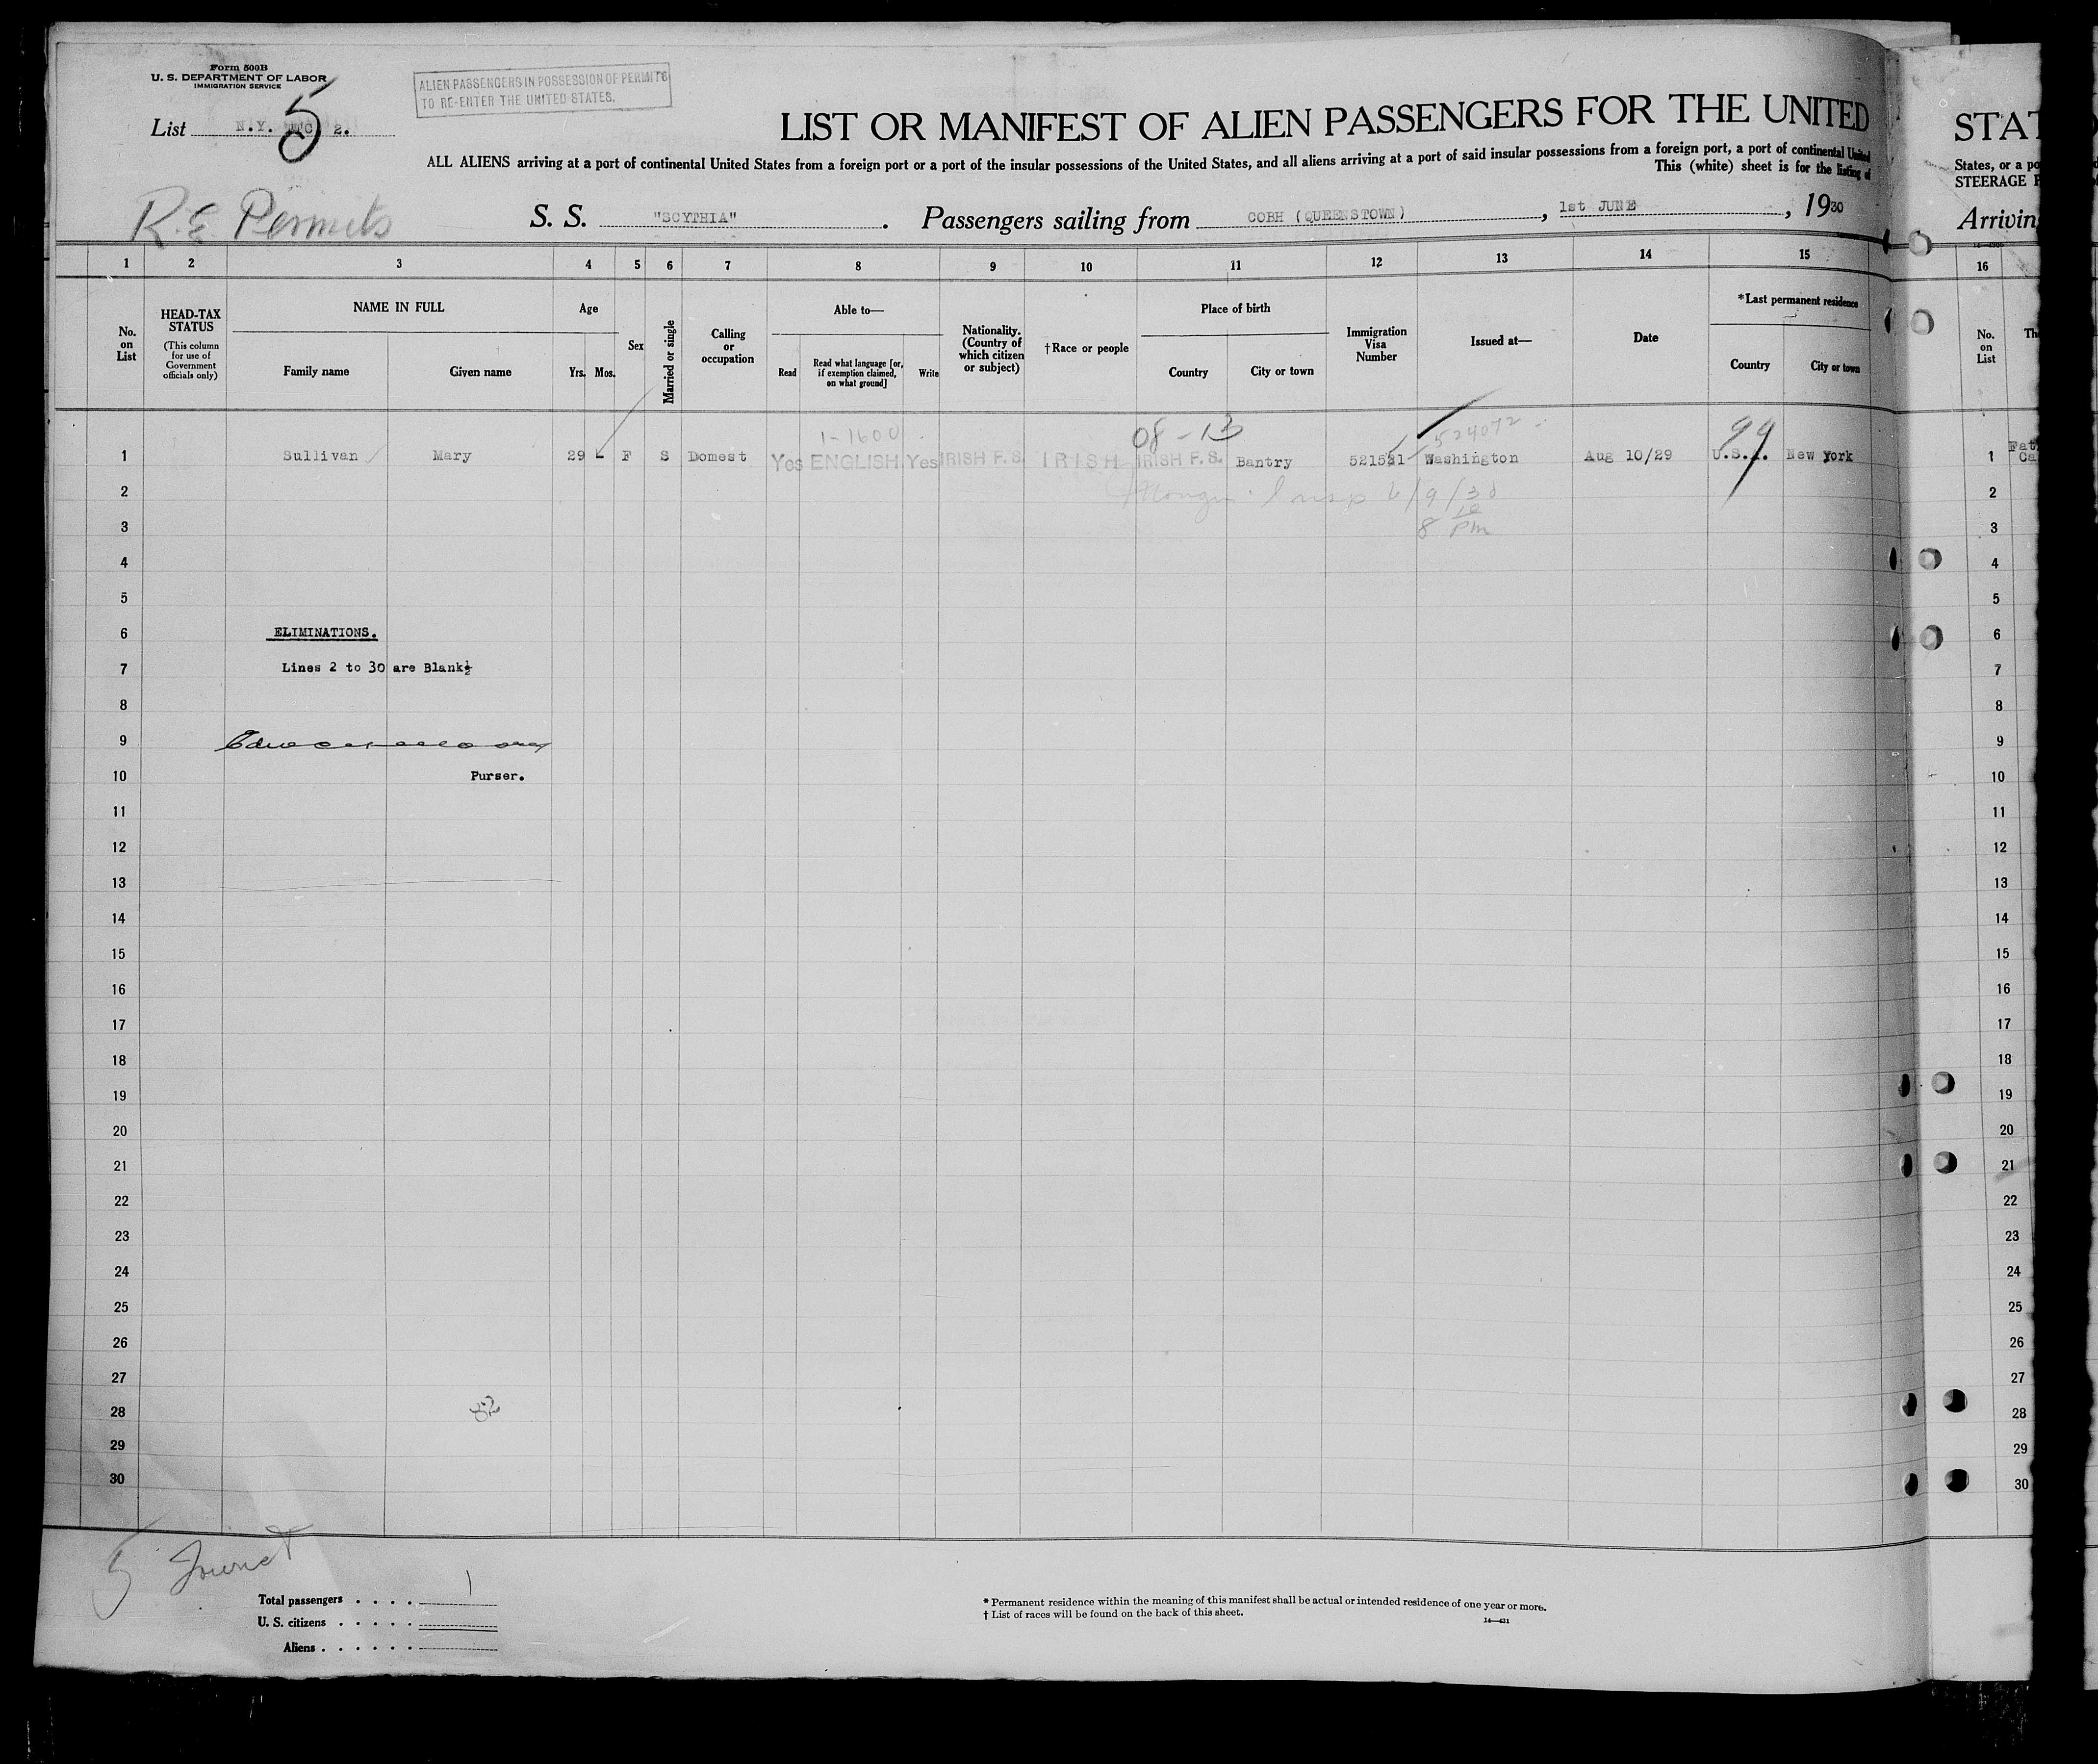 Form 500B
U. S. DEPARTMENT OF LABOR
IMMIGRATION SERVICE
ALIEN PASSENGERS IN POSSESSION OF PERMITS
TO RE-ENTER THE UNITED STATES.
List N.Y. 2.
5
LIST OR MANIFEST OF ALIEN PASSENGERS FOR THE UNITED
ALL ALIENS arriving at a port of continental United States from a foreign port or a port of the insular possessions of the United States, and all aliens arriving at a port of said insular possessions from a foreign port, a port of continental United
This (white) sheet is for the listing of
R.E Permits
S. S. "SCYTHIA". Passengers sailing from COBH (QUEENSTOWN), 1st JUNE, 1930
STAT
States, or a po
STEERAGE P
Arrivin
1 2 3 4 5 6 7 8 9 10 11 12 13 14 15 16
No. on List
HEAD-TAX STATUS
(This column for use of Government officials only)
NAME IN FULL
Family name Given name
Age
Yrs. Mos.
Sex
Married or single
Calling or occupation
Able to—
Read
Read what language [or, if exemption claimed, on what ground]
Write
Nationality. (Country of which citizen or subject)
†Race or people
Place of birth
Country City or town
Immigration Visa Number
Issued at—
Date
*Last permanent residence
Country City or town
No. on List
1-1600 08-13 524072 99
1 Sullivan Mary 29 F S Domest Yes ENGLISH Yes IRISH F.S. IRISH IRISH F.S. Bantry Washington Aug 10/29 U.S.A. New York 1
2 6/9/30 2
3 8 10 Pm 3
4 4
5 5
6 ELIMINATIONS. 6
7 Lines 2 to 30 are Blank 7
8 8
9 9
10 Purser. 10
11 11
12 12
13 13
14 14
15 15
16 16
17 17
18 18
19 19
20 20
21 21
22 22
23 23
24 24
25 25
26 26
27 27
28 28
29 29
30 30
5
Total passengers . . . . 1
U. S. citizens . . . . .
Aliens . . . . . .
* Permanent residence within the meaning of this manifest shall be actual or intended residence of one year or more.
† List of races will be found on the back of this sheet.